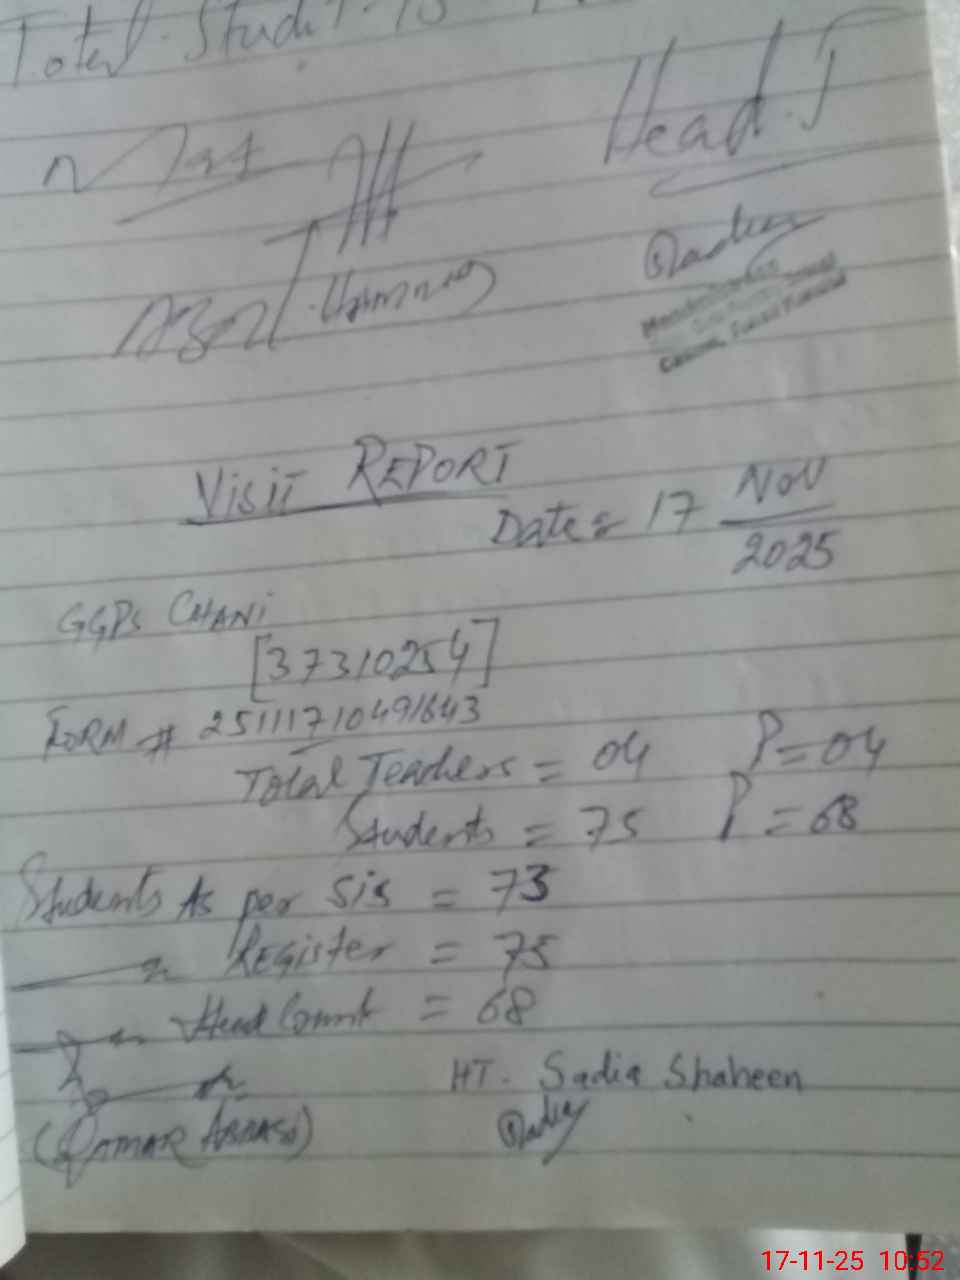 Total Studt. 75
Head.T
Visit REPORT
Date = 17 NOV
2025
GGPS CHANI
[37310254]
FORM # 25111710491643
Total Teachers = 04 P = 04
Students = 75 P = 68
Students As per SIS = 73
Register = 75
Head Count = 68
HT. Sadia Shaheen
(QAMAR ABBASI)
17-11-25 10:52